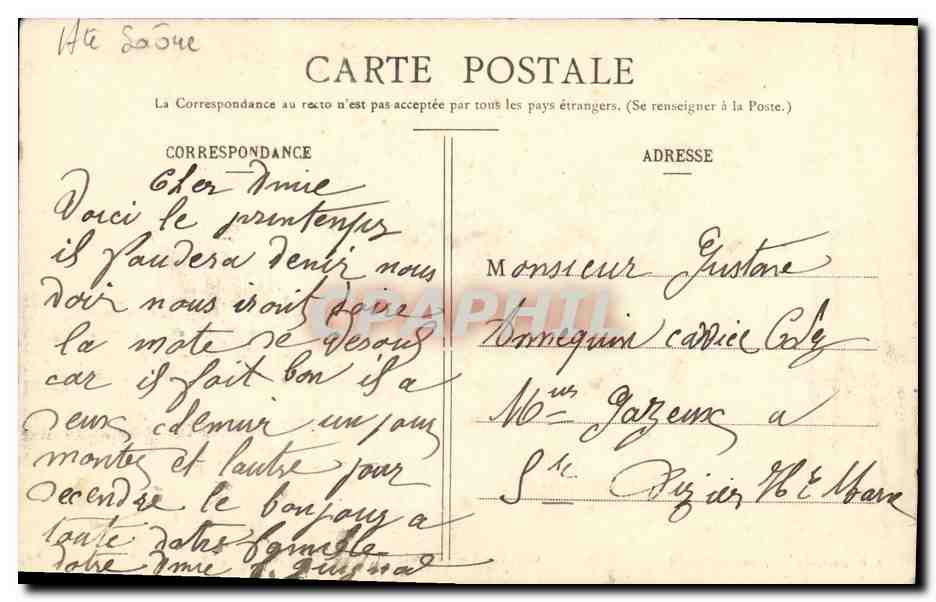 Hte Saône
CARTE POSTALE
La Correspondance au recto n'est pas acceptée par tous les pays étrangers. (Se renseigner à la Poste.)
CORRESPONDANCE
Cher Amie
Voici le printemps
il faudera venir nous
voir nous iront voire
la mote de Vesoul
car il fait bon il a
deux chemin un pour
montez et l'autre pour
decendre le bonjour a
toute votre famille
votre Amie
ADRESSE
Monsieur Gustave
Annequin
Mrs Gazeux a
St Dizier Hte Marne
CPAPHIL